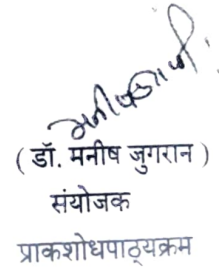 ( डॉ. मनीष जुगरान )
संयोजक
प्राकशोधपाठ्यक्रम